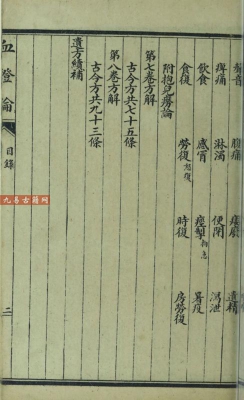 聲音　腹痛　痿廢　遺精
痺痛　淋濁　便閉　瀉泄
飲食　感冒　痙掣拘急　暑疫
食復　勞復怒復　時復　房勞復
附抱兒癆論
第七卷方解
古今方共七十五條
第八卷方解
古今方共九十三條
遺方續補
血證論　目錄　二
九易古籍网